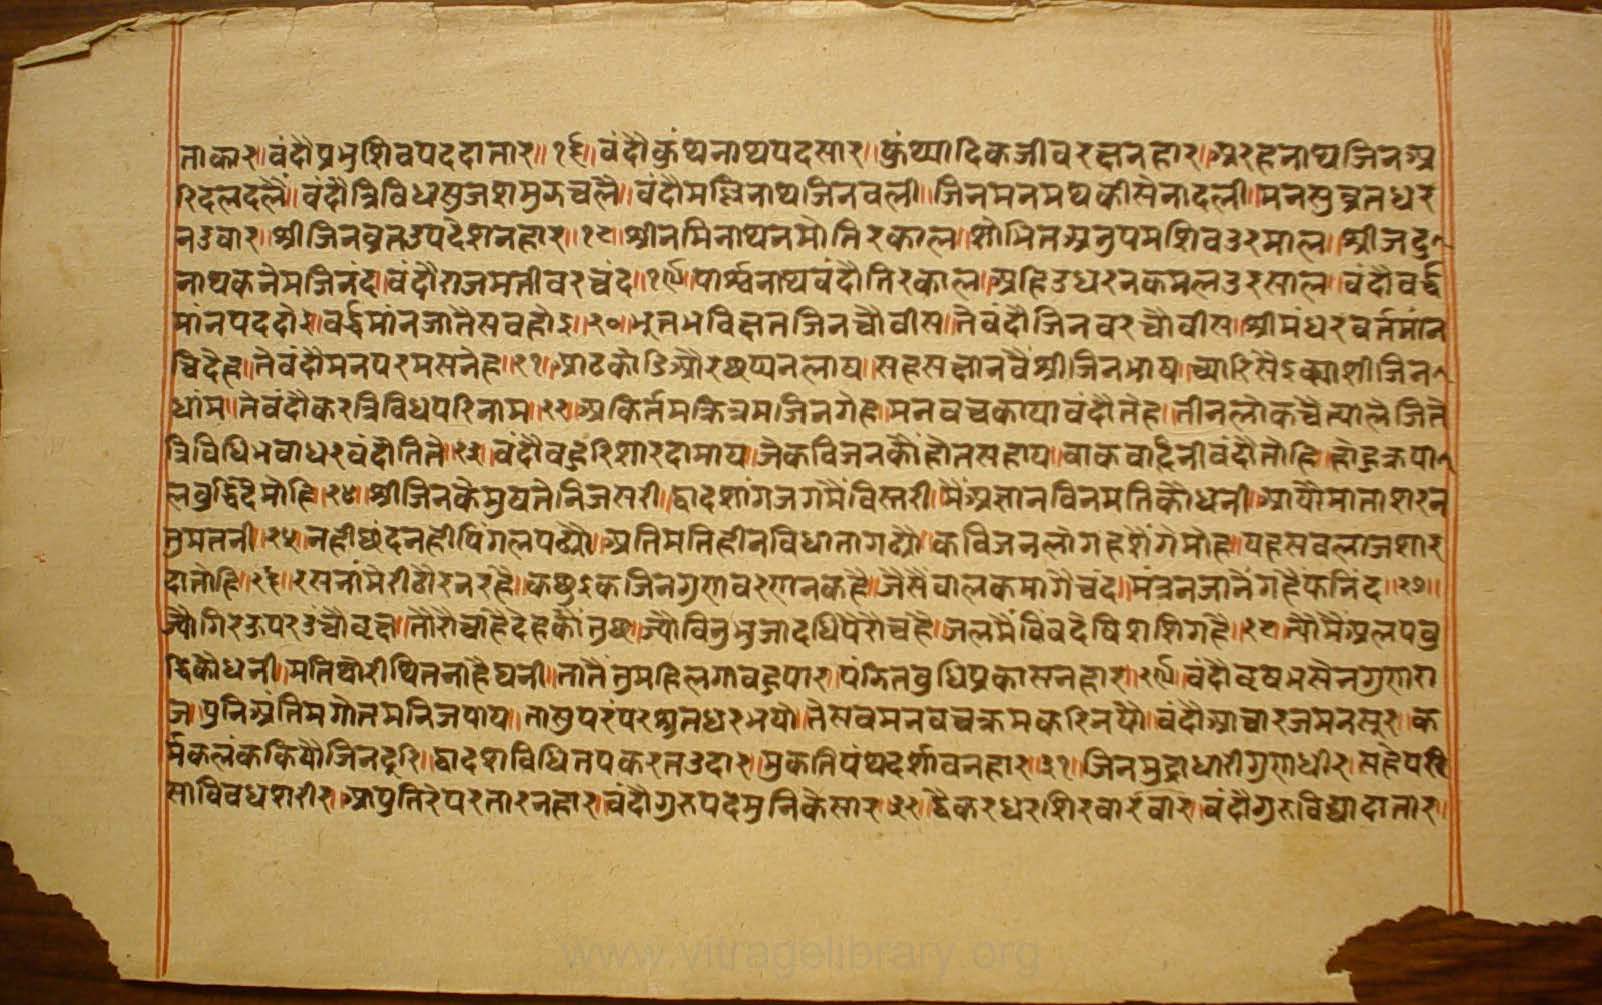 ताकार॥वंदौप्रभुशिवपददातार॥१६॥वंदौकुंथनाथपदसार॥कुंथ्यादिकजीवरक्षनहार॥अरहनाथजिनअ
रिदलदलै॥वंदौत्रिविधसुजशमुऊचलै॥वंदौमल्लिनाथजिनवली॥जिनमनमथकीसैनादली॥मनसुव्रतधर
नउवार॥श्रीजिनव्रतउपदेशनहार॥१८॥श्रीनमिनाथनमोतिरकाल॥शोभितअनुपमशिवउरमाल॥श्रीजदु
नाथकनेमजिनंद॥वंदौराजमतीवरचंद॥१९॥पार्श्वनाथवंदौतिरकाल॥अहिउधरनकमलउरसाल॥वंदौवर्द्ध
मांनपददोइ॥वर्द्धमांनजातैसवहोइ॥२०॥भूतभविक्षतजिनचौवीस॥तेवंदौजिनवरचौवीस॥श्रीमंधरवर्तमांन
विदेह॥तेवंदौमनपरमसनेह॥२१॥आठकोडिऔरछप्पनलाष॥सहससत्तानवैश्रीजिनभाष॥च्यारिसैइक्याशीजिन
धांम॥तेवंदौकरत्रिविधपरिनाम॥२२॥अकिर्तमक्रित्रमजिनगेह॥मनवचकायावंदौतेह॥तीनलोकचैत्यालैजिते
त्रिविधिभवाधरवंदौतिते॥२३॥वंदौवहुरिशारदामाय॥जेकविजनकौंहोतसहाय॥वाकवादंनीवंदौतोहि॥होहुक्रपा
लवुद्धिदैमोहि॥२४॥श्रीजिनकैमुषतेनिजसरी॥द्वादशांगजगमैंविस्तरी॥मैंअज्ञानविनमतिकौधनी॥आयौमाताशरन
तुमतनी॥२५॥नहीछंदनहीपिंगलपढ्यौ॥अतिमतिहीनविधातागढ्यौ॥कविजनलोगहशैंगेमोह॥यहसवलाजशार
दातोहि॥२६॥रसनांमेरीठौरनरहै॥कछुइकजिनगुणवरणनकहै॥जैसैंवालकमागैचंद॥मंत्रनजानैंगहैफनिंद॥२७॥
ज्यौगिरऊपरउंचौवृक्ष॥तोरौचाहैदेहकौंतुछ॥ज्यौविनुभुजादधिपैरोचहै॥जलमैंविंवदेषिशशिगहै॥२८॥त्यौमैंअलपवु
द्धिकौधनी॥मतिथोरीथितनाहैघनी॥तातैंतुमहिलगावहुपार॥पंडितवुधिप्रकासनहार॥२९॥वंदौवृषभसैनगुणरा
ज॥पुनिअंतिमगोतमनिजपाय॥तासुपरंपरश्रुतधरभयो॥तेसवमनवचक्रमकरिनयौ॥वंदौआचारजमनसूर॥क
र्मकलंककियौजिनदूरि॥द्वादशविधितपकरतउदार॥मुकतिपंथदर्शावनहार॥३१॥जिनमुद्राधारीगुणधीर॥सहैपरी
साविवधशरीर॥आपुतिरेपरतारनहार॥वंदौगुरुपदमुनिकेसार॥३२॥द्वैकरधरशिरवारंवार॥वंदौगुरुविद्यादातार॥
www.vitragelibrary.org